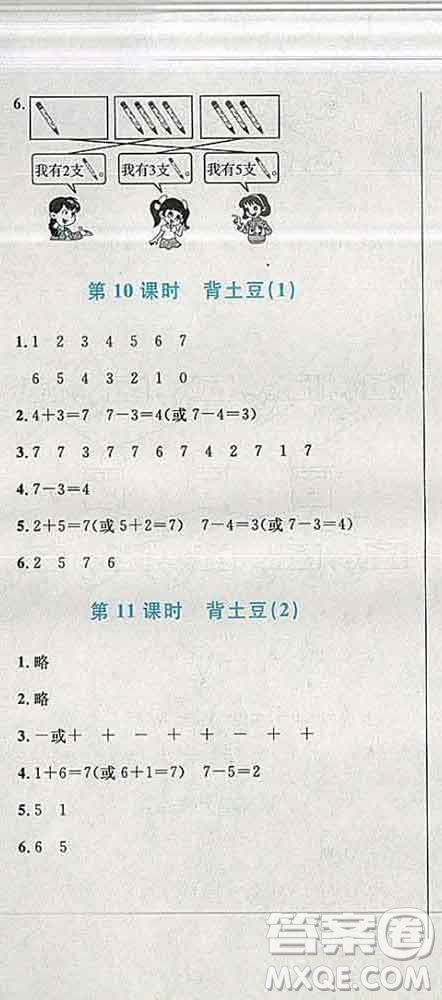 6.
我有2支 。 我有3支 。 我有5支 。
第10课时 背土豆(1)
1. 1 2 3 4 5 6 7
6 5 4 3 2 1 0
2. 4+3=7 7-3=4(或7-4=3)
3. 7 7 3 7 7 6 7 4 2 7 1 7
4. 7-3=4
5. 2+5=7(或5+2=7) 7-4=3(或7-3=4)
6. 2 5 7 6
第11课时 背土豆(2)
1. 略
2. 略
3. -或+ + - + + - + +
4. 1+6=7(或6+1=7) 7-5=2
5. 5 1
6. 6 5
答案圈
MXQE.COM